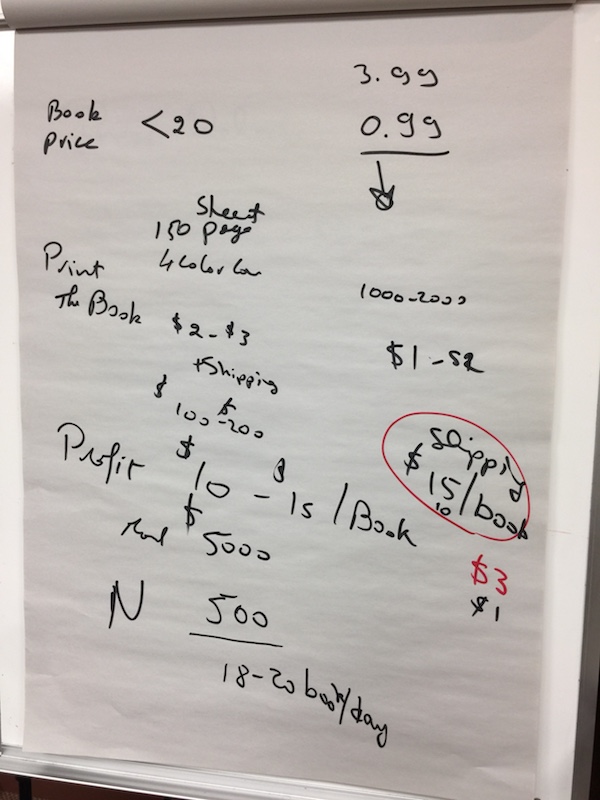 3.99
Book
price
<20
0.99
Sheet
150 page
Print
4 color
The Book
1000-2000
$2-$3
$1-$2
+Shipping
$100-$200
Shipping
$15/book
10
Profit
$10-$15/Book
$5000
$3
$1
N
500
18-20 book/day